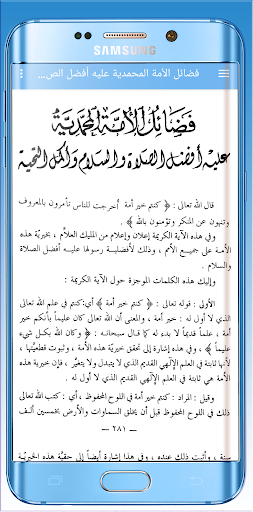 SAMSUNG
فضائل الأمة المحمدية عليه أفضل الص...
فَضَائِلُ الْأُمَّةِ الْمُحَمَّدِيَّةِ
عليه أفضل الصلاة والسلام وأكمل التحية
قال الله تعالى : ﴿ كنتم خير أمة أُخرجت للناس تأمرون بالمعروف
وتنهون عن المنكر وتؤمنون بالله ﴾ .
وفي هذه الآية الكريمة إعلان وإعلام من المليك العلَّام ، بخيريَّة هذه
الأمة على جميع الأمم ، وذلك لأفضلية رسولها عليه أفضل الصلاة
والسلام .
وإليك هذه الكلمات الموجزة حول الآية الكريمة :
الأولى : قوله تعالى : ﴿ كنتم خير أمة ﴾ أي: كنتم في علم الله تعالى
الذي لا أول له : خير أمة ، والمعنى أن الله تعالى كان عليماً بأنكم خير
أمة ، علماً قديماً لا بدء له كما قال سبحانه : ﴿ وكان الله بكل شيء
عليماً ﴾ ، وفي هذه إشارة إلى تحقق خيريَّة هذه الأمة ، وثبوت قطعيَّتها ،
لأنها ثابتة في العلم الإلهي القديم الذي لا يتبدل ولا يتغيَّر ، فإن خيرية هذه
الأمة هي ثابتة في العلم الإلهي القديم الذي لا أول له .
وقيل : المراد : كنتم خير أمة في اللوح المحفوظ ، أي : كتب الله تعالى
ذلك في اللوح المحفوظ قبل أن يخلق السماوات والأرض بخمسين ألف
— ٢٨١ —
سنة ، وأثبت ذلك عنده ، وفي هذا إشارة إلى حقيَّة هذه الخيرية